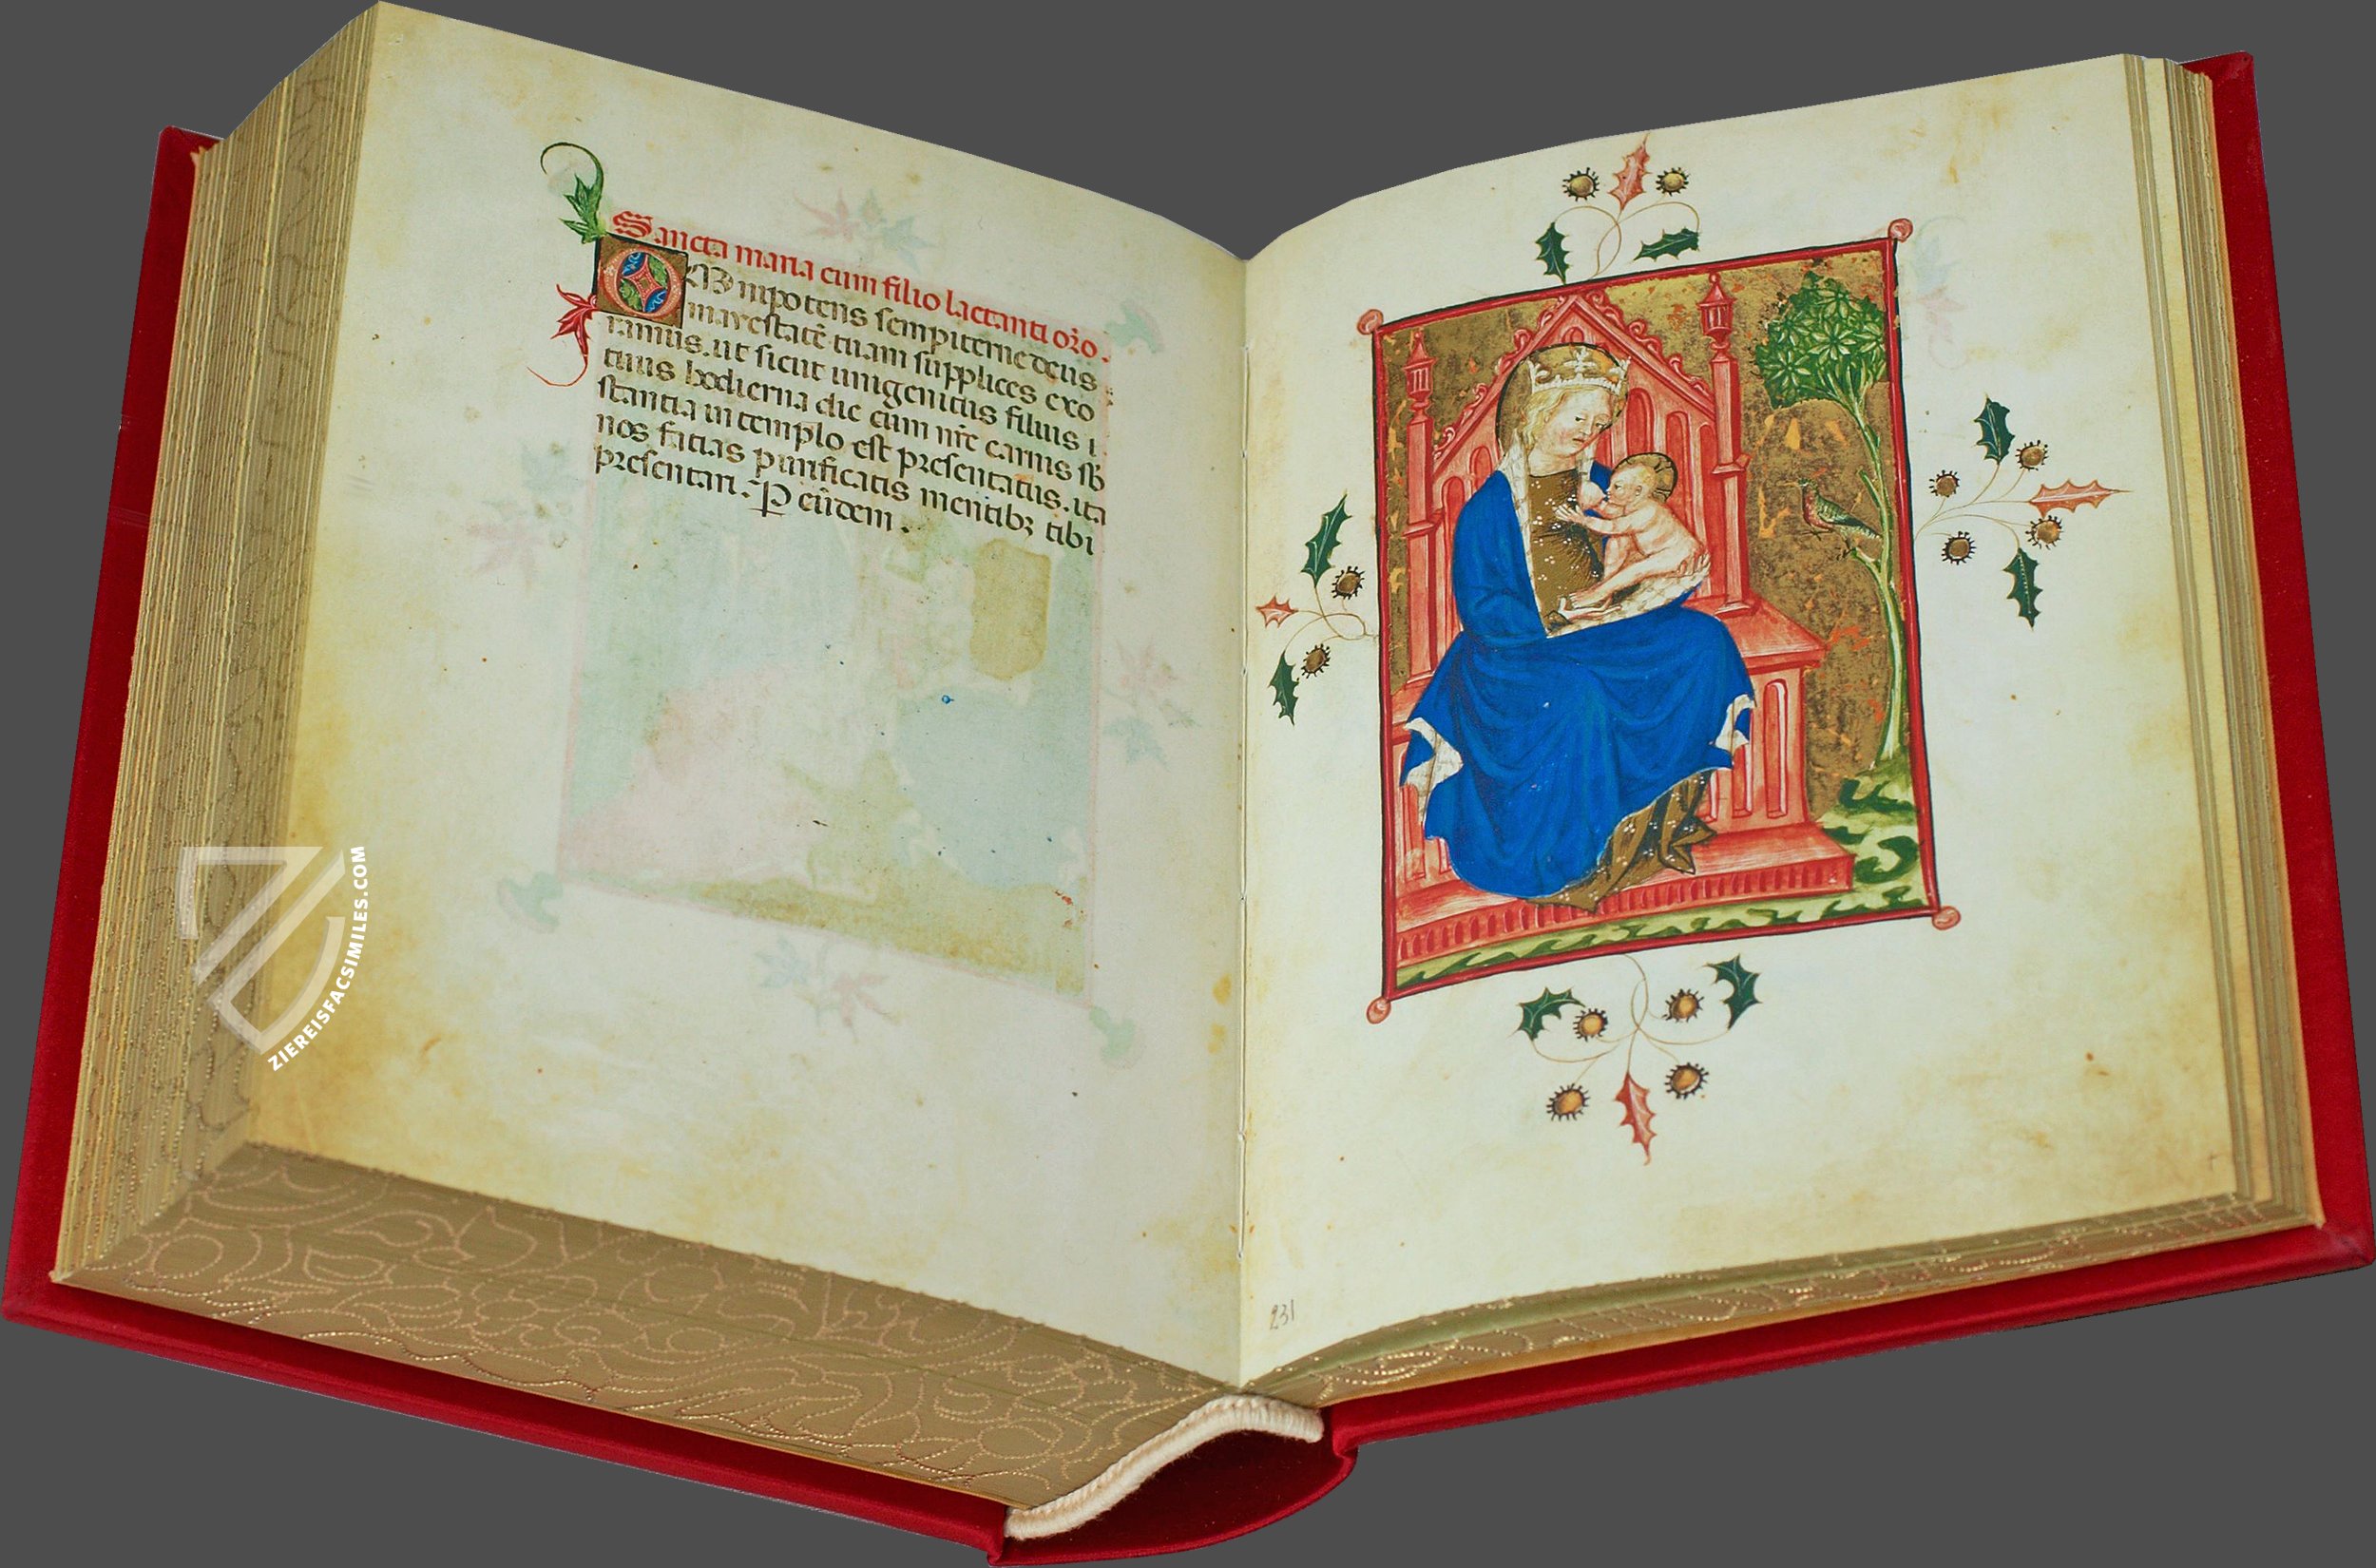 Sancta maria cum filio lactanti oro.
OMnipotens sempiterne deus
maiestatē tuam supplices exo
ramus. ut sicut unigenitus filius t
tuus hodierna die cum nr̄e carnis sb̄
stantia in templo est presentatus. ita
nos facias purificatis mentibꝫ tibi
presentari. P eūdem.
231
ZIEREISFACSIMILES.COM